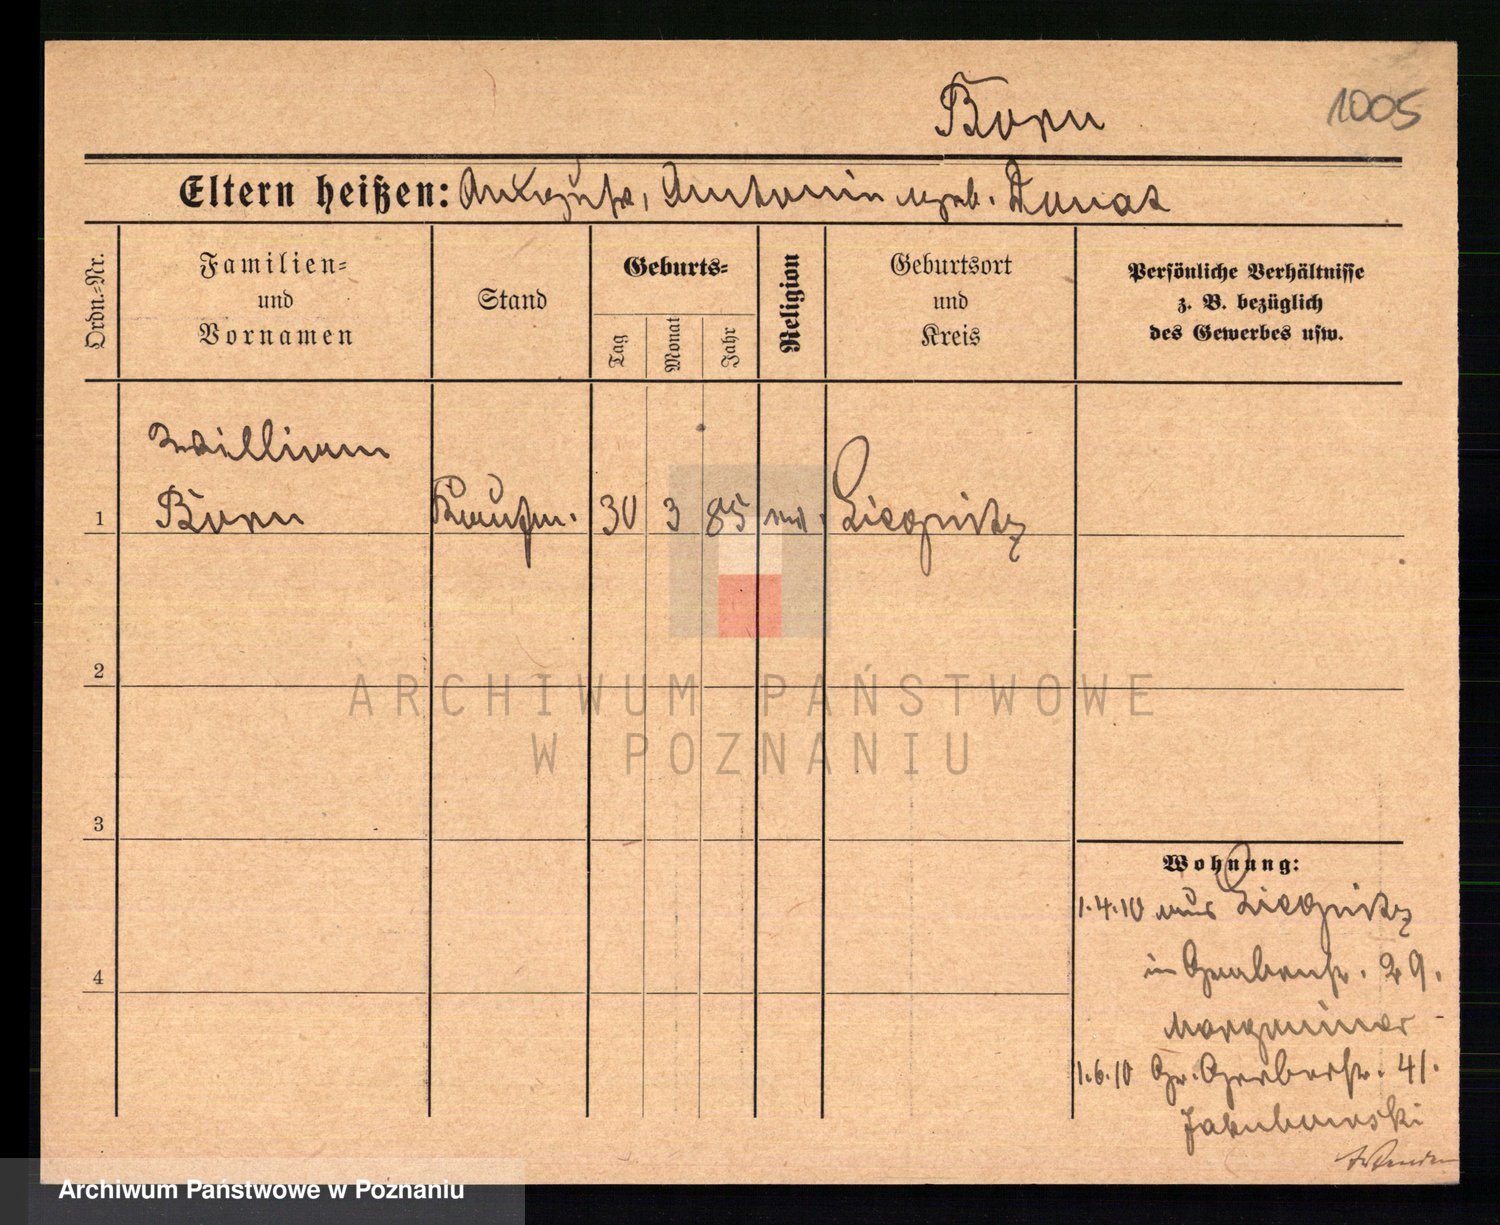 Born 1005
Eltern heißen: August, Antonin geb. Donat
Ordn.-Nr.
Familien-
und
Vornamen
Stand
Geburts-
Tag
Monat
Jahr
Religion
Geburtsort
und
Kreis
Persönliche Verhältnisse
z. B. bezüglich
des Gewerbes usw.
William
1 Born Kaufm. 30 3 85 Liegnitz
2
ARCHIWUM PAŃSTWOWE
W POZNANIU
3
Wohnung:
1.4.10 aus Liegnitz
4 in Grabenstr. 29.
1.6.10 Gr. Gerberstr. 41.
Jakubowski
Archiwum Państwowe w Poznaniu